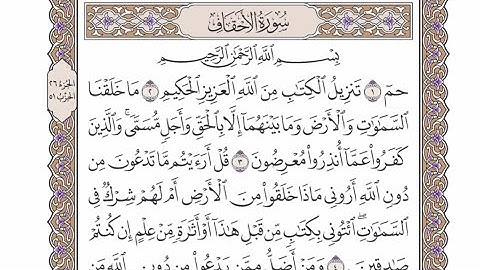 سُورَةُ الْأَحْقَافِ
بِسْمِ اللَّهِ الرَّحْمَٰنِ الرَّحِيمِ
الجزء ٢٦
الحزب ٥١
حمٓ ١ تَنزِيلُ الْكِتَابِ مِنَ اللَّهِ الْعَزِيزِ الْحَكِيمِ ٢ مَا خَلَقْنَا
السَّمَاوَاتِ وَالْأَرْضَ وَمَا بَيْنَهُمَا إِلَّا بِالْحَقِّ وَأَجَلٍ مُّسَمًّى ۚ وَالَّذِينَ
كَفَرُوا عَمَّا أُنذِرُوا مُعْرِضُونَ ٣ قُلْ أَرَءَيْتُم مَّا تَدْعُونَ مِن
دُونِ اللَّهِ أَرُونِي مَاذَا خَلَقُوا مِنَ الْأَرْضِ أَمْ لَهُمْ شِرْكٌ فِي
السَّمَاوَاتِ ۖ ائْتُونِي بِكِتَابٍ مِّن قَبْلِ هَٰذَا أَوْ أَثَارَةٍ مِّنْ عِلْمٍ إِن كُنتُمْ
صَادِقِينَ ٤ وَمَنْ أَضَلُّ مِمَّن يَدْعُو مِن دُونِ اللَّهِ مَن